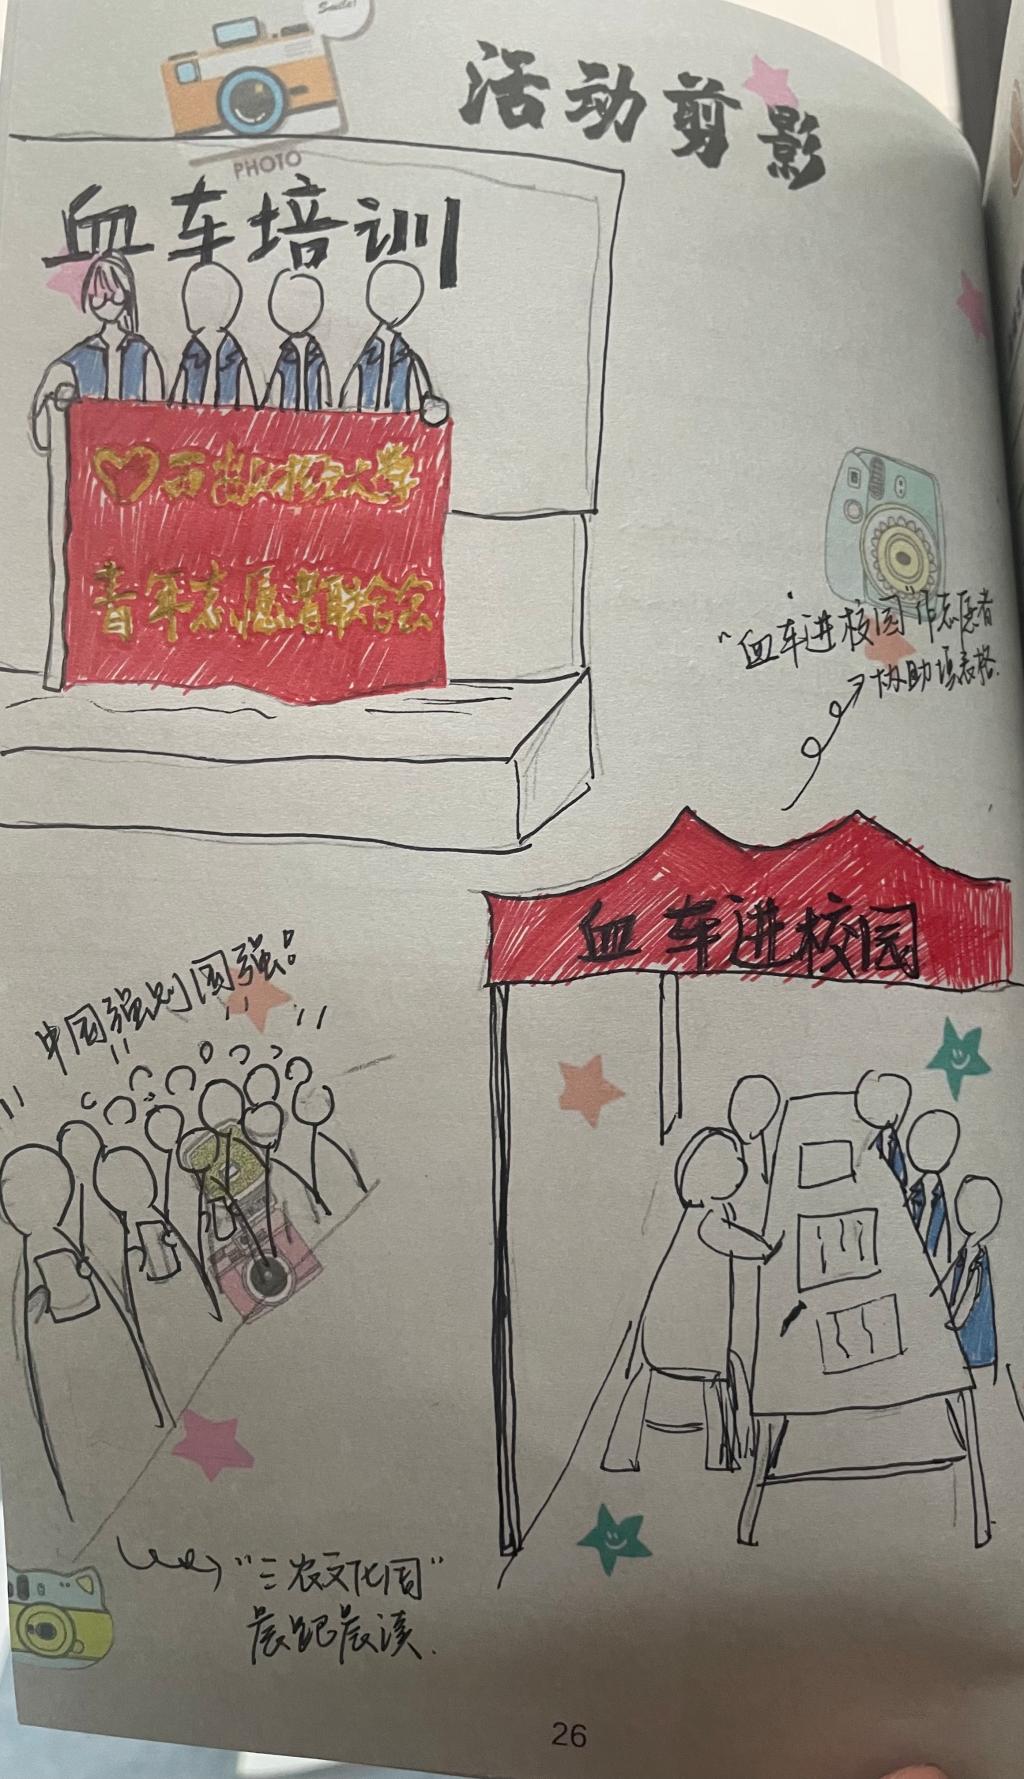 Smile!
活动剪影
PHOTO
血车培训
西南财经大学
青年志愿者联合会
"血车进校园"作志愿者
协助填表格.
血车进校园
中国强则国强!
"三农文化周"
晨跑晨读.
26